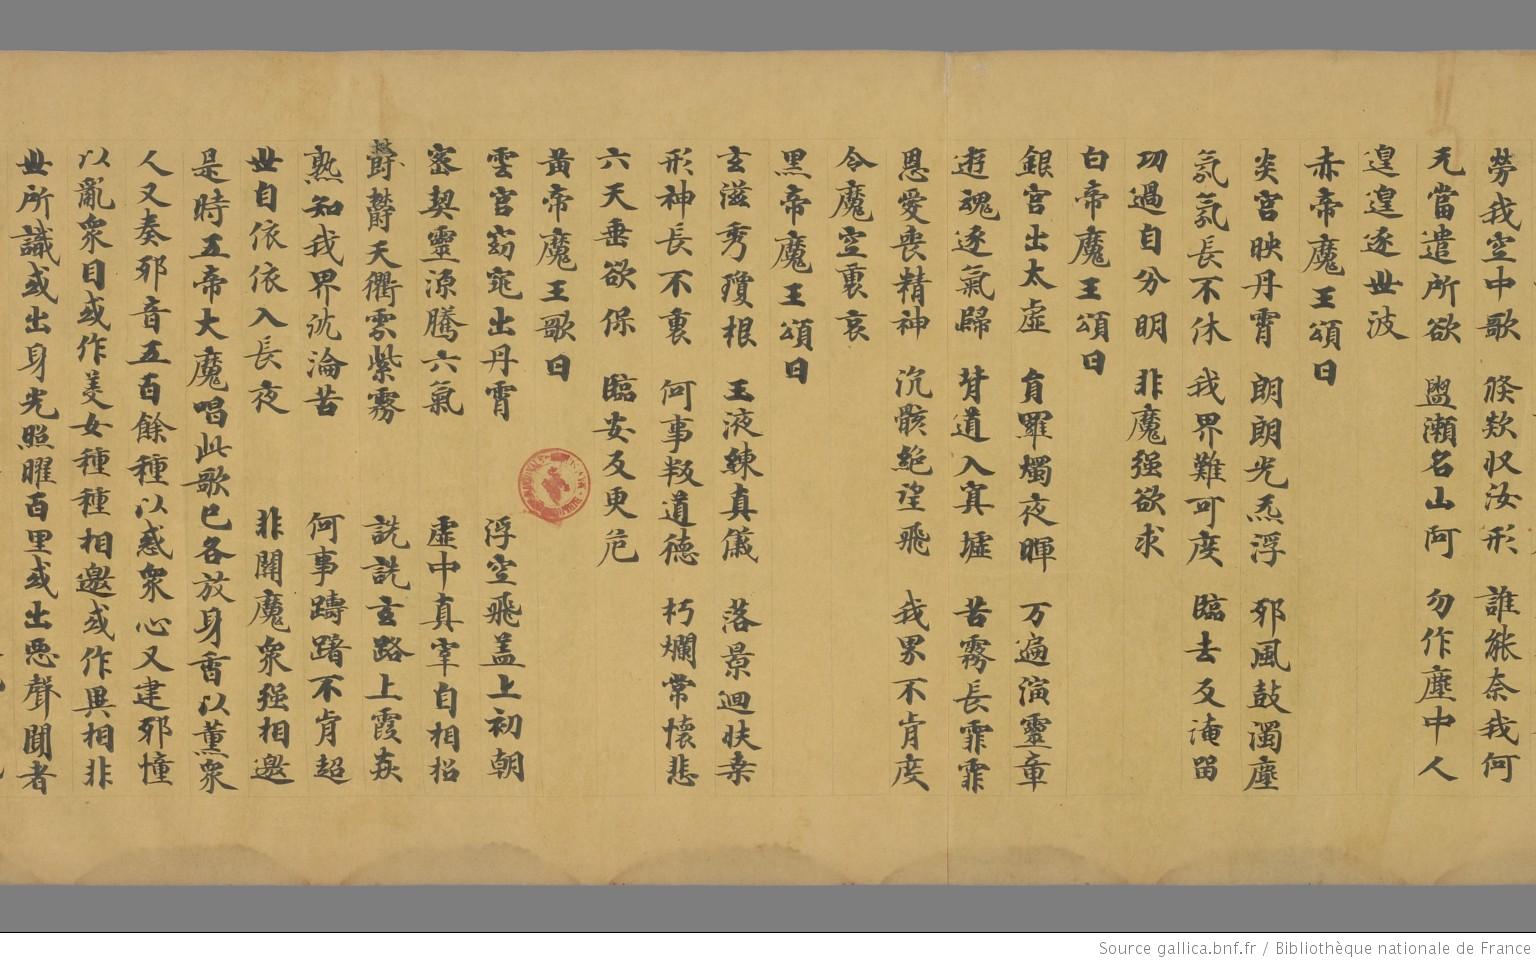 勞我空中歌 倏欻収汝形 誰能奈我何
无當遣所欲 盥瀨名山阿 勿作塵中人
遑遑逐世波
赤帝魔王頌曰
炎宮映丹霄 朗朗光炁浮 邪風鼓濁塵
氛氛長不休 我界難可度 臨去及淹留
功過自分明 非魔强欲求
白帝魔王頌曰
銀宮出太虛 育羅燭夜暉 万遍演靈章
遊魂逐氣歸 背道入冥墟 苦霧長霏霏
恩愛喪精神 沉骸絕望飛 我界不肯度
令魔空裏哀
黑帝魔王頌曰
玄滋秀瓊根 玉液練真儀 落景迴扶桒
形神長不衰 何事叛道德 朽爛常懷悲
六天垂欲保 臨安反更危
黃帝魔王歌曰
雲宮窈窕出丹霄 浮空飛盖上初朝
密契靈源騰六氣 虛中真宰自相招
欝欝天衢雰紫霧 詵詵玄路上霞
熟知我界沈淪苦 何事躊躇不肯超
世自依依入長夜 非關魔衆强相邀
是時五帝大魔唱此歌已各放身香以薰衆
人又奏邪音五百餘種以惑衆心又建邪幢
以亂衆目或作美女種種相邀或作異相非
世所識或出身光照曜百里或出惡聲聞者